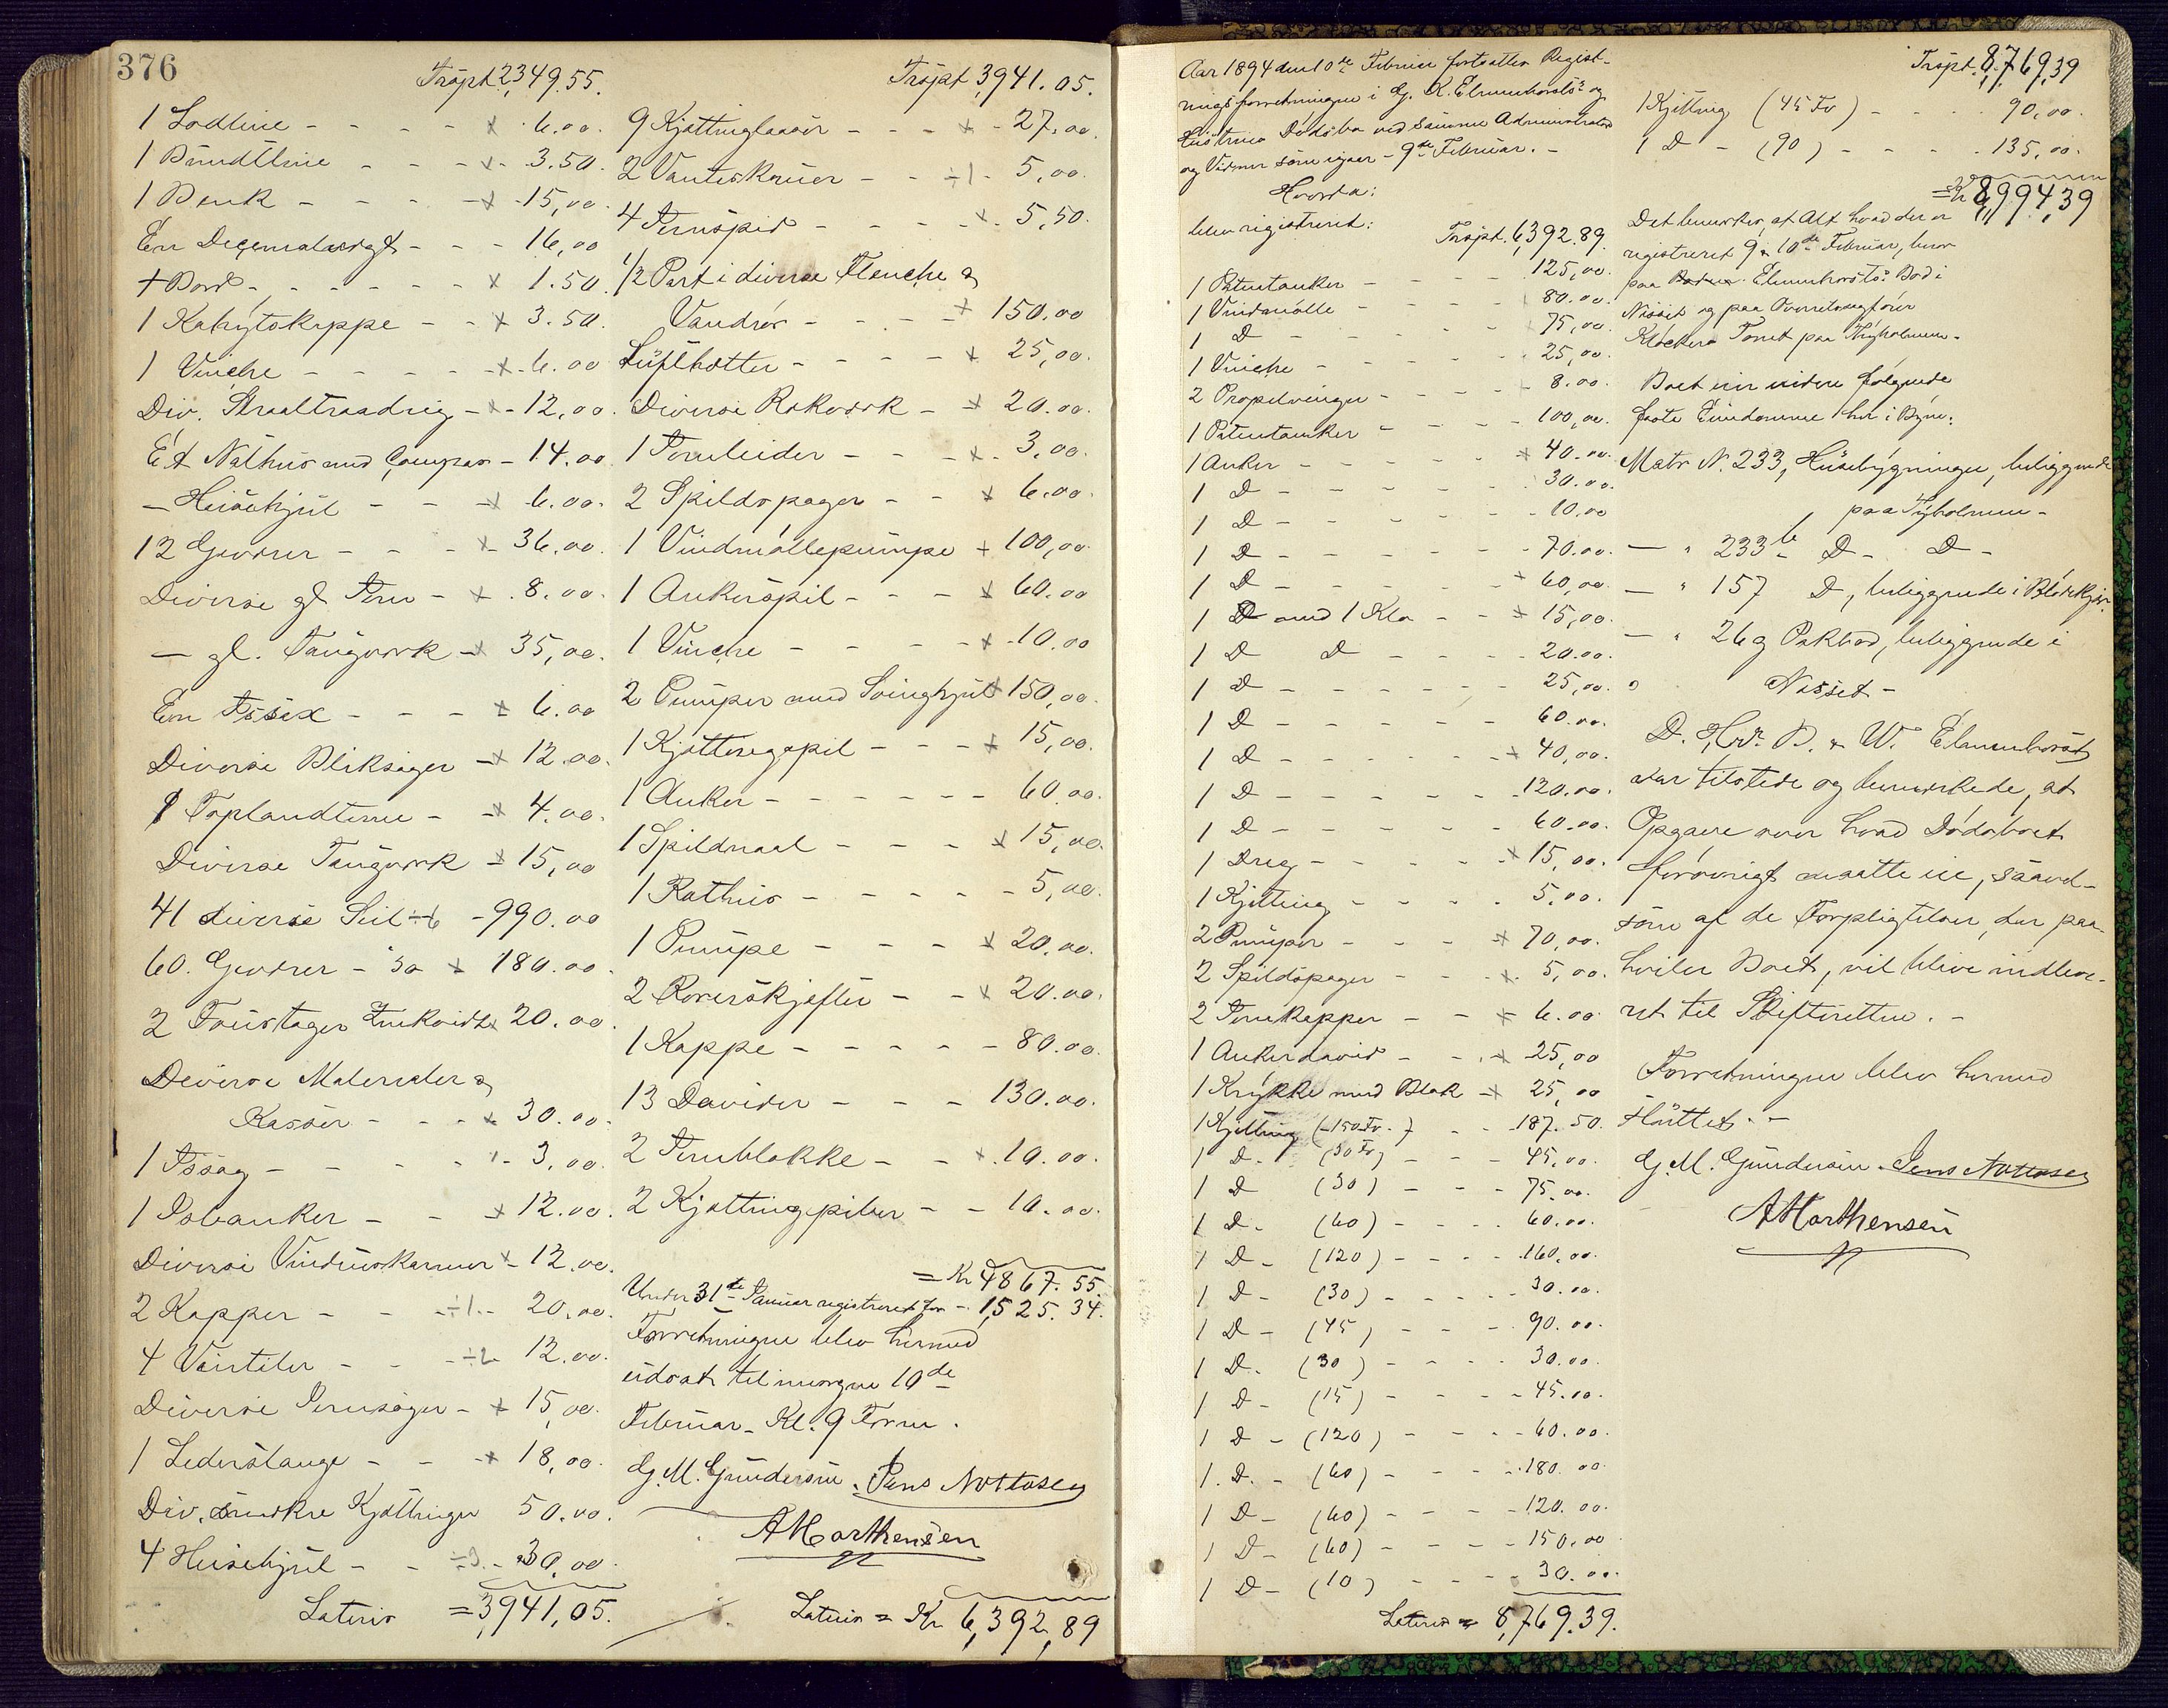 376
Trspt. 2,349.55.
1 Lodline - - - - x 6.00.
1 Bundtline - - - x 3.50.
1 Benk - - - - x 15,00.
En Decemalvægt - - - 16,00
1 Bord - - - - - - x 1.50.
1 Kahytskappe - - x 3.50.
1 Vinche - - - - - x 6.00
Div. Staaltraadrig - x - 12,00.
Et Nathus med Compas - 14.00
— Heisehjul - - - x 6.00.
12 Geværer - - - x 36.00.
Diverse gl Jern - x 8.00.
— gl. Taugværk - x 35,00.
En - - - x 6.00
Diverse Bliksager - x 12.00.
1 Toplandterne - - x 4.00.
Diverse Taugværk - x 15,00
41 diverse Seil ÷ 6 - 990.00
60. Geværer - 30 x 180.00.
2 x 20.00.
Diverse Materialer &
Kasser - - - x 30.00.
1 Issag - - - - - 3,00.
1 Isanker - - - x 12.00.
Diverse Vinduskarmer x - 12.00.
2 Kapper - - - ÷1. - 20,00.
4 Ventiler - - - ÷2 - 12.00.
Diverse Jernsager - x 15,00.
1 Lederstange - - - x 18,00.
Div. smækre Kjættinger 50.00.
4 Heisehjul - - ÷3. - 30,00.
Lateris = 3,941,05.
Trspt 3,941.05.
9 Kjættinglaaser - - - x - 27,00.
2 Vanteskruer - - ÷1 - 5,00.
4 Jernspid - - - - x. 5,50.
1/2 Part i diverse Flenche &
Vandrør - - - - x 150.00
Lufthætter - - - - x 25,00.
Diverse Rækværk - x 20.00.
1 Jernleider - - - x. 3,00.
2 Spildspager - - x 6.00.
1 Vindmøllepumpe x 100,00.
1 Ankerspil - - - x 60.00
1 Vinche - - - - x 10.00
2 Pumper med Svinghjul x 150,00.
1 Kjættingspil - - - x 15,00.
1 Anker - - - - - - 60.00.
1 Spildnaal - - - x 15,00.
1 Rathus - - - - - 5,00.
1 Pumpe - - - - x 20.00.
2 Rorerskjefter - - x 20.00.
1 Kappe - - - - - 80.00.
13 Davider - - - 130.00.
2 Jernblokke - - x. 10.00.
2 Kjættingpiber - - 10.00.
= Kr 4867.55.
Under 31te Januar registreret for - 1,525.34.
Forretningen blev hermed
udsat til imorgen 10de
Februar - Kl. 9 Form.
G. M. Gundersen. Jens Nottosen
A Morthensen
Lateris = Kr 6,392,89
Aar 1894 den 10de Februar fortsattes Regist-
ringsforretningen i G. K. Elmenhorsts og
Hustrues Dødsbo ved samme Administrator
og Vidner som igaar - 9de Februar. -
Hvorda:
blev registreret:
Trspt. 6,392.89.
1 Patentanker - - - - 125,00.
1 Vindmølle - - - - 80.00.
1 D - - - - - 75,00.
1 Vinche - - - - - 25,00.
2 Propelvinger - - - - 8.00.
1 Patentanker - - - - 100,00.
1 Anker - - - - - x 40.00.
1 D - - - - - - 30.00.
1 D - - - - - - 10.00
1 D - - - - - - 70.00.
1 D - - - - - x 60,00.
1 D med 1 Klo - - x 15,00.
1 D D - - - - 20.00.
1 D - - - - - - 25,00.
1 D - - - - - - 60.00.
1 D - - - - - x 40,00.
1 D - - - - - - 120.00.
1 D - - - - - - 60.00.
1 Dreg - - - - - x 15,00.
1 Kjetting - - - - 5.00.
2 Pumper - - - x 70,00.
2 Spildspager - - - x. 5,00.
2 Jernkapper - - x 6.00.
1 Ankerdavid - - - x 25,00
1 Krykke med Blok - x 25,00
1 Kjetting (150 Fv.) - - 187.50.
1 D - (30 Fv) - - - 45,00.
1 D (30) - - - 75.00.
1 D - (60) - - - 60.00.
1 D - (120) - - - 160,00.
1 D - (30) - - - - 30.00.
1 D - (45) - - - 90.00.
1 D - (30) - - - - 30.00.
1 D - (15) - - - - 45.00.
1 D - (120) - - - 60.00.
1. D. - (60) - - - 180.00.
1 D - (60) - - - 120.00.
1 D - (60) - - - 150.00
1 D - (10) - - - 30.00.
Lateris = 8,769.39.
Trspt. 8,769,39
1 Kjetting (45 Fv) - - - - 90,00.
1 D - (90) - - - - 135,00.
= Kr 8,994,39
Det bemærkes, at Alt hvad der er
registreret 9 & 10de Februar, beror
paa Elmenhorsts Bod i
Næsset og paa Overretssagfører
Kløckers Tomt paa Tyholmen.
Boet eier videre følgende
faste Eiendomme her i Byen:
Matr N. 233, Husebygninger, beliggende
paa Tyholmen -
— " 233b D - D -
— " 157 D, beliggende i Blødekjær.
— " 26g Pakbod, beliggende i
Næsset -
D. Hrr. B. & W. Elmenhorst
var tilstede og bemærkede, at
Opgave over hvad Dødsboet
forøvrigt maatte eie, saavel-
som af de Forpligtelser, der paa-
hviler Boet, vil blive indleve-
ret til Skifteretten. -
Forretningen blev hermed
sluttet. -
G. M. Gundersen. Jens Nottosen
A Morthensen